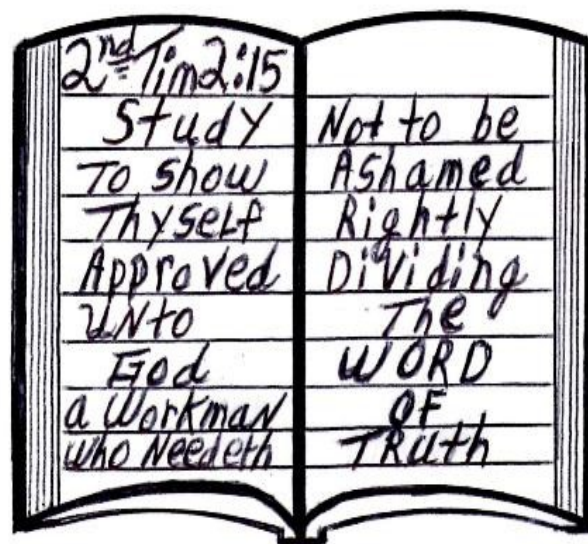 2nd Tim 2:15
Study
To show
Thyself
Approved
UNto
God
a WorkmaN
who Needeth
Not to be
AShamed
Rightly
DiViding
The
WORD
OF
TRuth